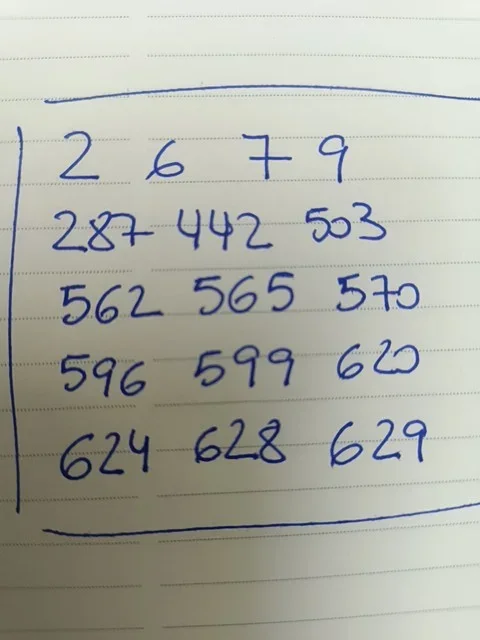 2 6 7 9
287 442 503
562 565 570
596 599 620
624 628 629